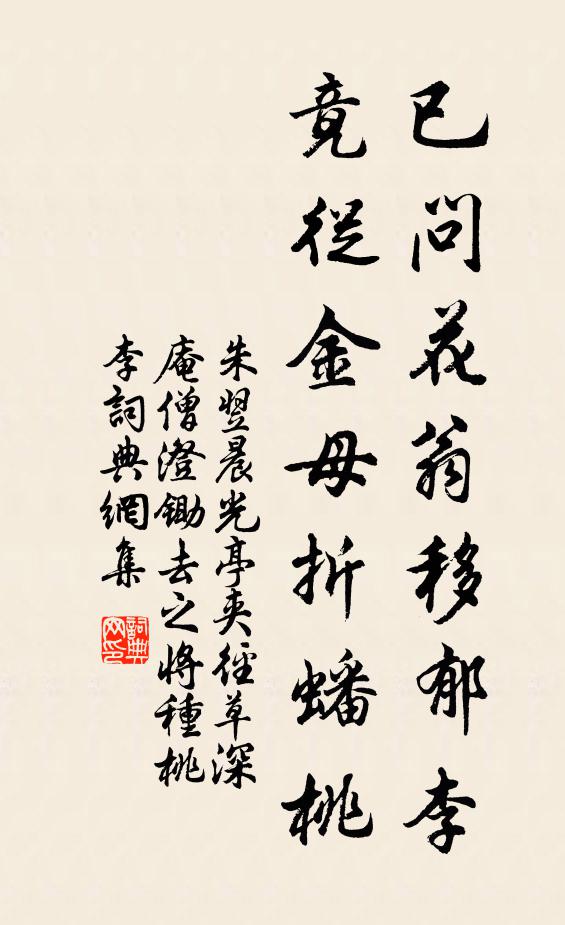 已問花翁移郁李
竟從金母折蟠桃
朱翌晨光亭夾徑草深
庵僧澄鋤去之將種桃
李詞典網集
詞典
网印